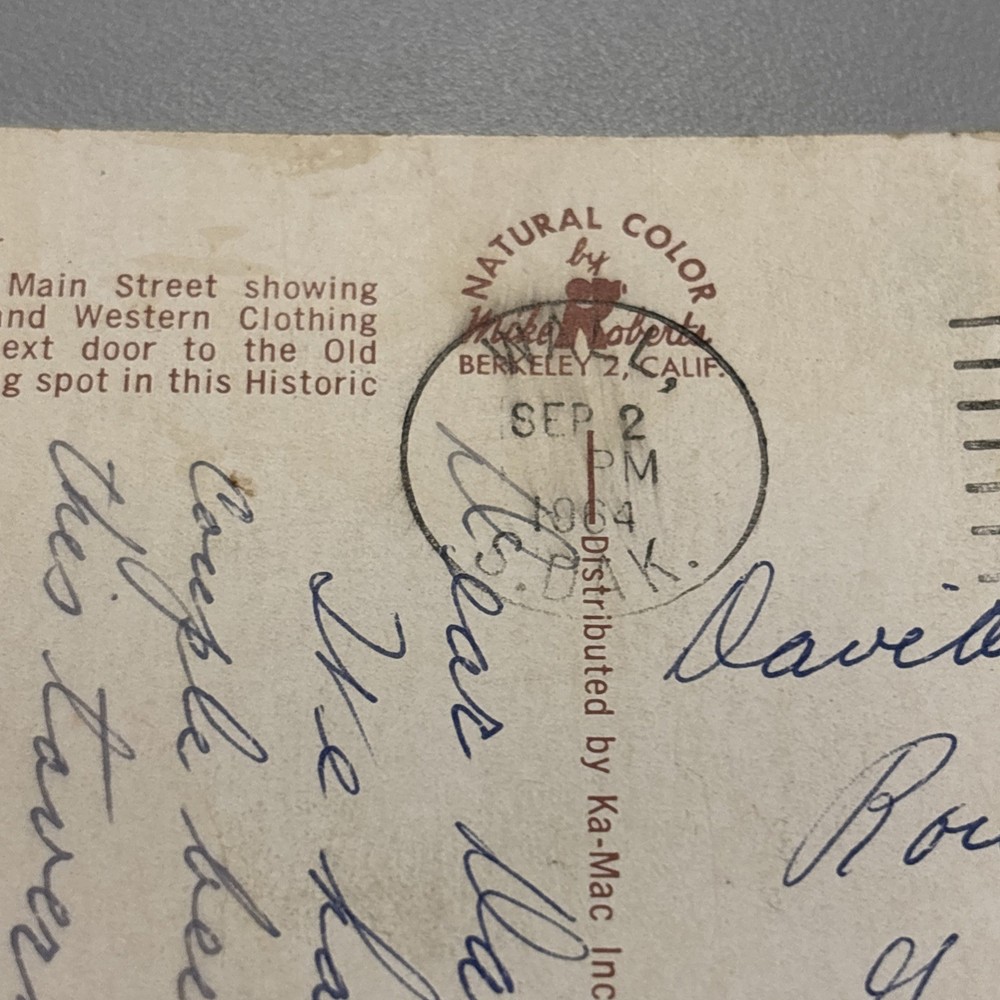 Main Street showing
and Western Clothing
ext door to the Old
g spot in this Historic
NATURAL COLOR
by
Mike Roberts
BERKELEY 2, CALIF.
SEP 2
PM
1964
S. DAK.
Distributed by Ka-Mac Inc
Dear
We ha
Couple bee
this taver
David
Rou